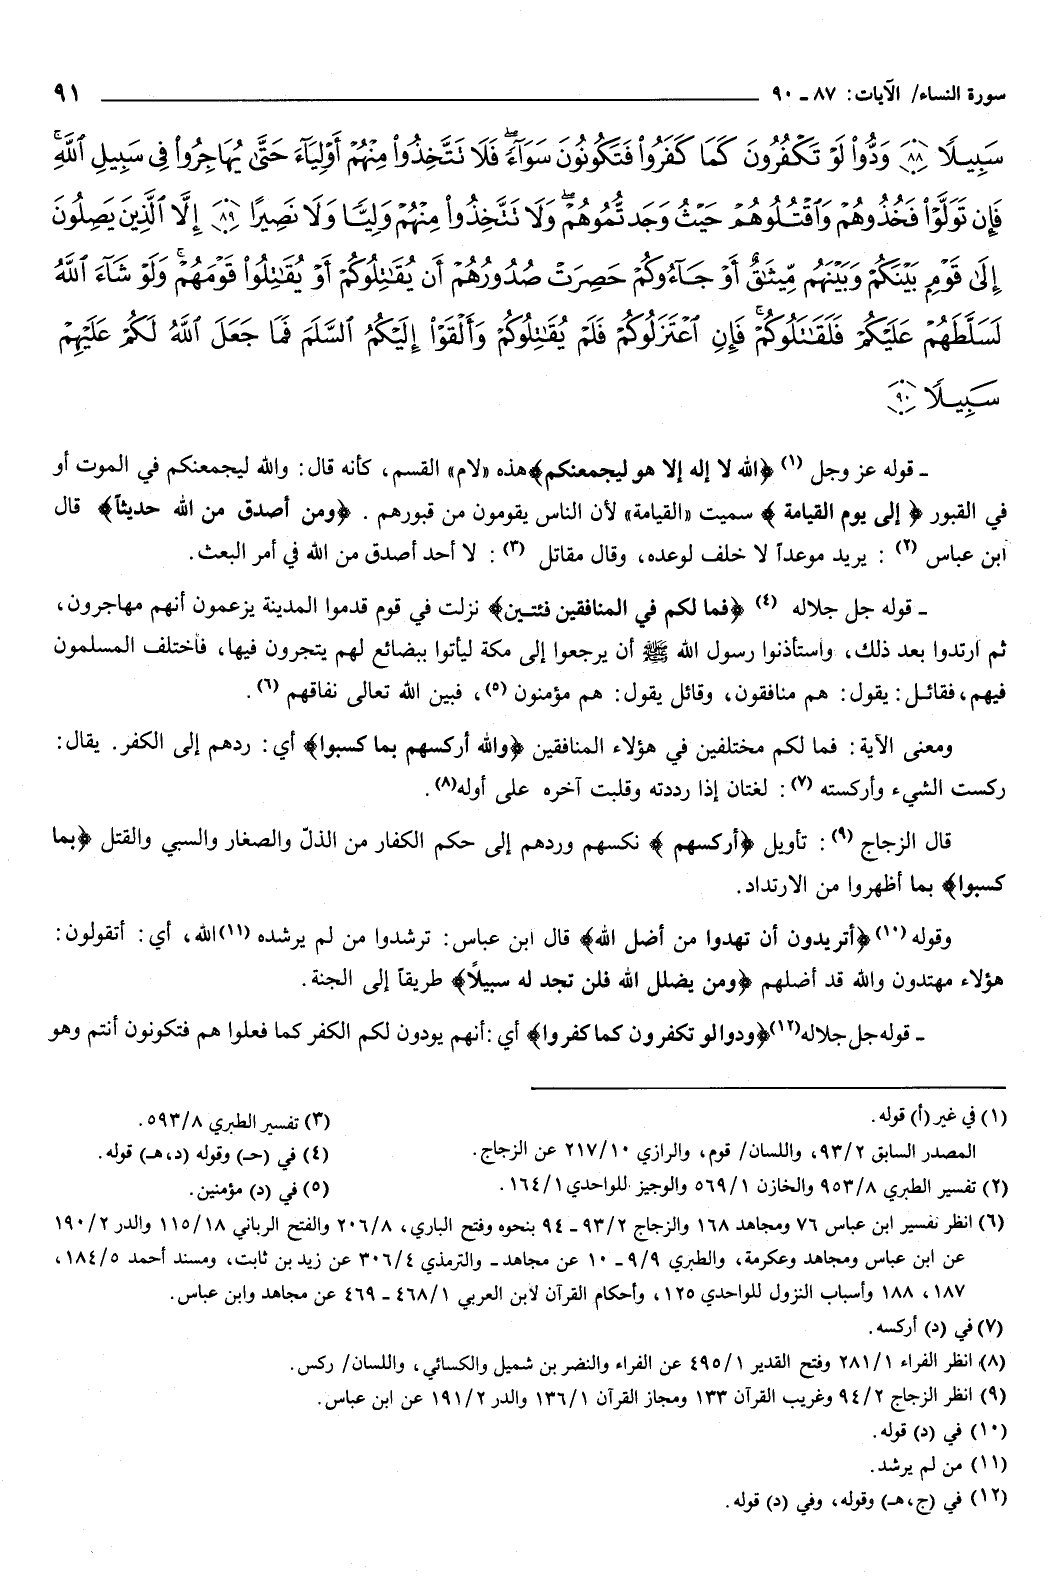 سورة النساء/ الآيات: ٨٧ - ٩٠ ٩١
سَبِيلًا ٨٨ وَدُّوا۟ لَوْ تَكْفُرُونَ كَمَا كَفَرُوا۟ فَتَكُونُونَ سَوَآءً ۖ فَلَا تَتَّخِذُوا۟ مِنْهُمْ أَوْلِيَآءَ حَتَّىٰ يُهَاجِرُوا۟ فِى سَبِيلِ ٱللَّهِ ۚ
فَإِن تَوَلَّوْا۟ فَخُذُوهُمْ وَٱقْتُلُوهُمْ حَيْثُ وَجَدتُّمُوهُمْ ۖ وَلَا تَتَّخِذُوا۟ مِنْهُمْ وَلِيًّا وَلَا نَصِيرًا ٨٩ إِلَّا ٱلَّذِينَ يَصِلُونَ
إِلَىٰ قَوْمٍۭ بَيْنَكُمْ وَبَيْنَهُم مِّيثَٰقٌ أَوْ جَآءُوكُمْ حَصِرَتْ صُدُورُهُمْ أَن يُقَٰتِلُوكُمْ أَوْ يُقَٰتِلُوا۟ قَوْمَهُمْ ۚ وَلَوْ شَآءَ ٱللَّهُ
لَسَلَّطَهُمْ عَلَيْكُمْ فَلَقَٰتَلُوكُمْ ۚ فَإِنِ ٱعْتَزَلُوكُمْ فَلَمْ يُقَٰتِلُوكُمْ وَأَلْقَوْا۟ إِلَيْكُمُ ٱلسَّلَمَ فَمَا جَعَلَ ٱللَّهُ لَكُمْ عَلَيْهِمْ
سَبِيلًا ٩٠
- قوله عز وجل (١) ﴿الله لا إله إلا هو ليجمعنكم﴾ هذه «لام» القسم، كأنه قال: والله ليجمعنكم في الموت أو
في القبور ﴿ إلى يوم القيامة ﴾ سميت «القيامة» لأن الناس يقومون من قبورهم . ﴿ومن أصدق من الله حديثاً﴾ قال
ابن عباس (٢) : يريد موعداً لا خلف لوعده، وقال مقاتل (٣) : لا أحد أصدق من الله في أمر البعث.
- قوله جل جلاله (٤) ﴿فما لكم في المنافقين فئتين﴾ نزلت في قوم قدموا المدينة يزعمون أنهم مهاجرون،
ثم ارتدوا بعد ذلك، واستأذنوا رسول الله ﷺ أن يرجعوا إلى مكة ليأتوا ببضائع لهم يتجرون فيها، فاختلف المسلمون
فيهم، فقائل: يقول: هم منافقون، وقائل يقول: هم مؤمنون (٥)، فبين الله تعالى نفاقهم (٦).
ومعنى الآية: فما لكم مختلفين في هؤلاء المنافقين ﴿والله أركسهم بما كسبوا﴾ أي: ردهم إلى الكفر. يقال:
ركست الشيء وأركسته (٧) : لغتان إذا رددته وقلبت آخره على أوله(٨).
قال الزجاج (٩) : تأويل ﴿أركسهم ﴾ نكسهم وردهم إلى حكم الكفار من الذلّ والصغار والسبي والقتل ﴿بما
كسبوا﴾ بما أظهروا من الارتداد.
وقوله (١٠) ﴿أتريدون أن تهدوا من أضل الله﴾ قال ابن عباس: ترشدوا من لم يرشده (١١)الله، أي: أتقولون:
هؤلاء مهتدون والله قد أضلهم ﴿ومن يضلل الله فلن تجد له سبيلاً﴾ طريقاً إلى الجنة.
- قوله جل جلاله(١٢)﴿ودوا لو تكفرون كما كفروا﴾ أي :أنهم يودون لكم الكفر كما فعلوا هم فتكونون أنتم وهو
(١) في غير (أ) قوله.
المصدر السابق ٩٣/٢، واللسان/ قوم، والرازي ٢١٧/١٠ عن الزجاج.
(٢) تفسير الطبري ٩٥٣/٨ والخازن ٥٦٩/١ والوجيز للواحدي ١٦٤/١.
(٣) تفسير الطبري ٥٩٣/٨.
(٤) في (حـ) وقوله (د، هـ) قوله.
(٥) في (د) مؤمنين.
(٦) انظر تفسير ابن عباس ٧٦ ومجاهد ١٦٨ والزجاج ٩٣/٢ - ٩٤ بنحوه وفتح الباري، ٢٠٦/٨ والفتح الرباني ١١٥/١٨ والدر ١٩٠/٢
عن ابن عباس ومجاهد وعكرمة، والطبري ٩/٩ - ١٠ عن مجاهد - والترمذي ٣٠٦/٤ عن زيد بن ثابت، ومسند أحمد ١٨٤/٥،
١٨٧، ١٨٨ وأسباب النزول للواحدي ١٢٥، وأحكام القرآن لابن العربي ٤٦٨/١ - ٤٦٩ عن مجاهد وابن عباس.
(٧) في (د) أركسه.
(٨) انظر الفراء ٢٨١/١ وفتح القدير ٤٩٥/١ عن الفراء والنضر بن شميل والكسائي، واللسان/ ركس.
(٩) انظر الزجاج ٩٤/٢ وغريب القرآن ١٣٣ ومجاز القرآن ١٣٦/١ والدر ١٩١/٢ عن ابن عباس.
(١٠) في (د) قوله.
(١١) من لم يرشد.
(١٢) في (ج، هـ) وقوله، وفي (د) قوله.